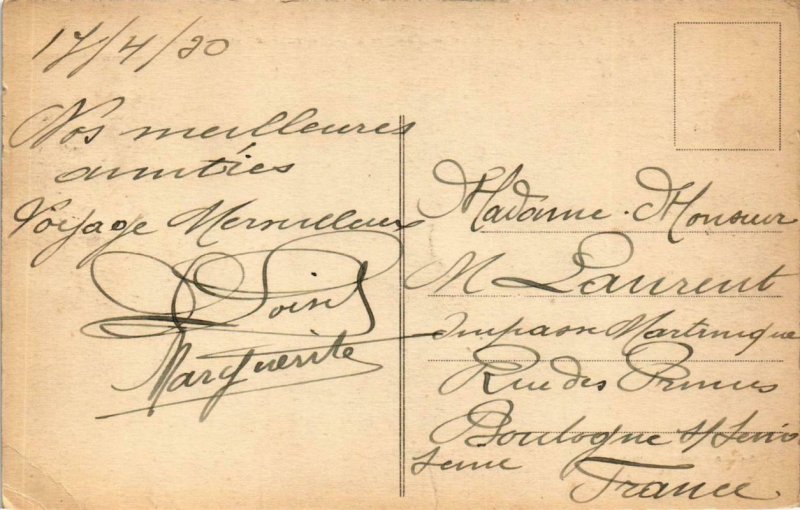 17/4/30
Nos meilleures
amitiés
Voyage Merveilleux
Marguerite
Madame. Monsieur
M Laurent
Impasse Martinique
Rue des
Boulogne s/Seine
Seine
France